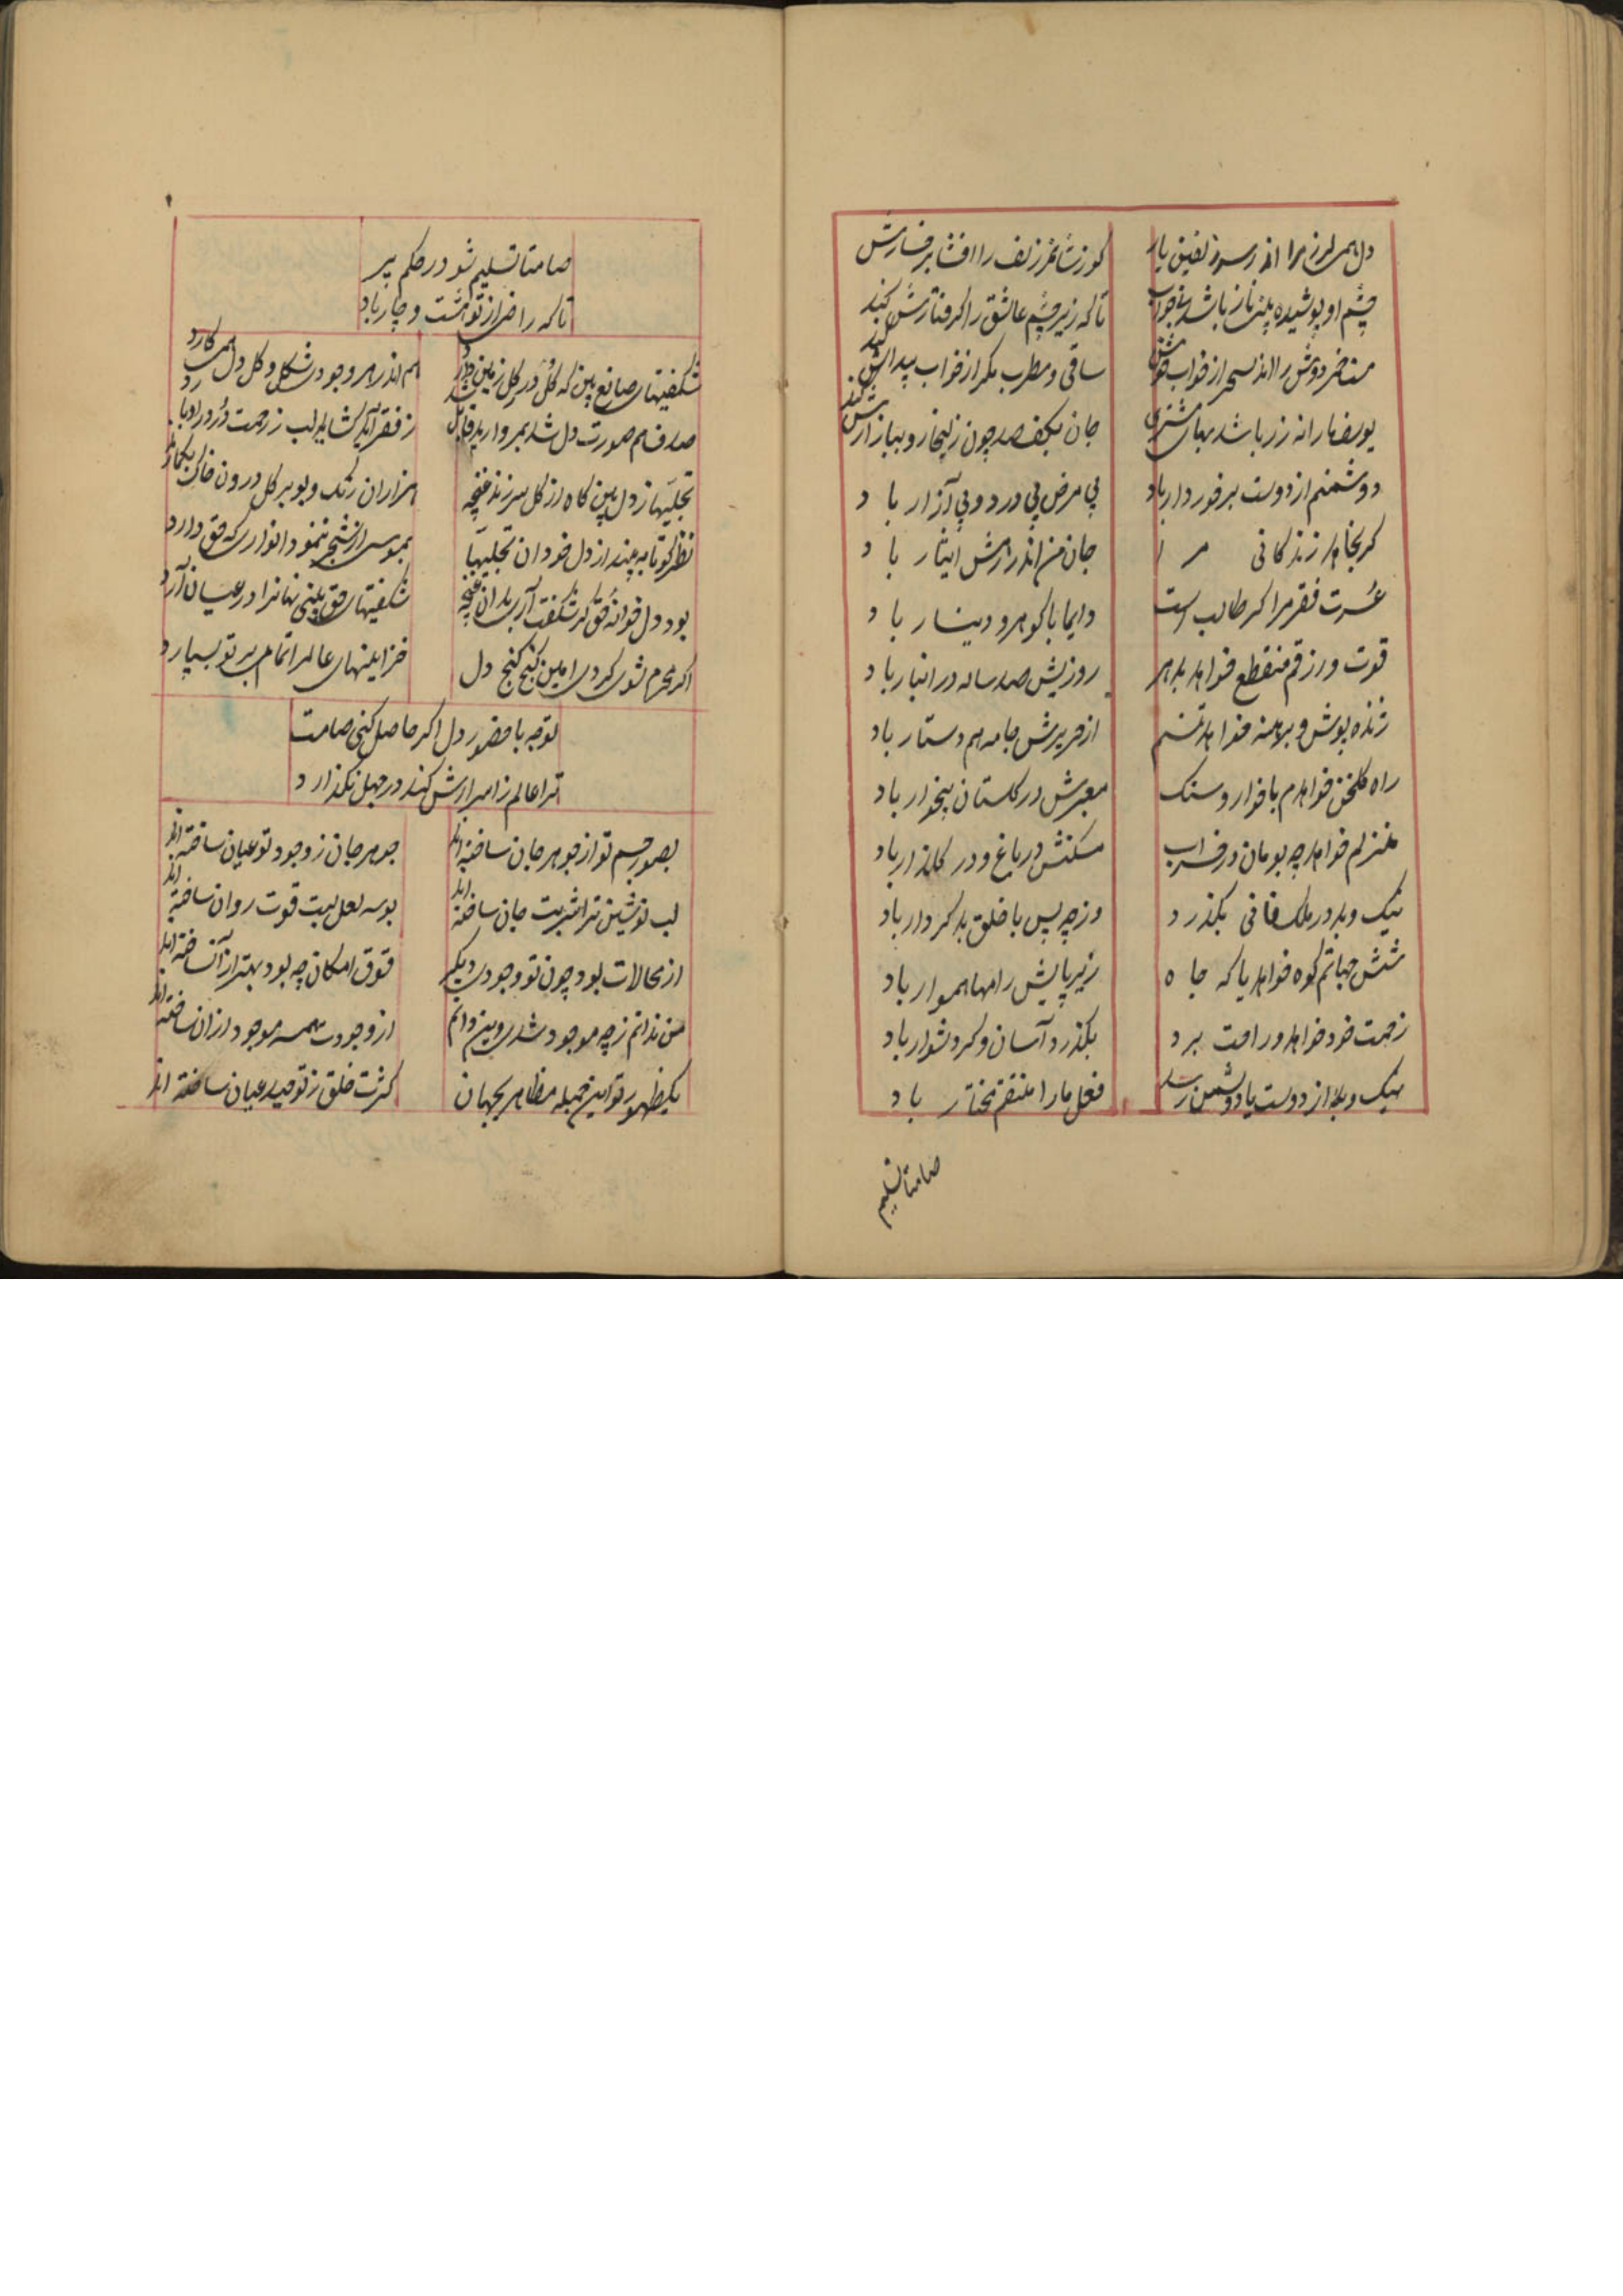 دل همی لرزد مرا اندر سر زلفین یار
کو زشانه زلف را افشا بر خسارش
چشم او پوشیده باشد بخواب
تا که زیر چشم عاشق را گرفتارش کند
ساقی و مطرب مگر از خواب بیدارش کند
یوسف ما را نه زر باشد بهای مشتری
جان بکف صد چون زلیخا رو ببازارش کند
دوشمنم از دوست برخوردار باد
بی مرض بی درد و بی آزار باد
گر نخواهد زندگانی مرا
جان من اندر رهش ایثار باد
عسرت فقر مرا گر طالب است
دایما با گوهر و دینار باد
قوت و رزقم منقطع خواهد بدهر
روزیش صد ساله در انبار باد
ژنده پوش و برهنه خواهد تنم
از حریرش جامه هم دستار باد
راه گلخن خواهدم با خار و سنگ
معبرش در گلستان بیخار باد
منزلم خواهد چه بومان در خراب
مسکنش در باغ و در گلزار باد
نیک و بد در ملک فانی بگذرد
وز چه پس با خلق بد کردار باد
شش جهاتم کوه خواهد یا که چاه
زیر پایش راهها هموار باد
زحمت خود خواهد و راحت برد
بگذرد آسان و گر دشوار باد
نیک و بد از دوست یا دوشمن رسد
فعل ما را منتقم مختار باد
صامتا تسلیم
صامتا تسلیم شو در حکم پیر
تا که راضی از تو هشت و چار باد
شکفتیهای صانع بین که گل در گل زمین دارد
هم اندر هر وجودی شکل و گل دل همی کارد
صدف هم صورت دل شد بمروارید قابل
تجلیها ز دل بین گاه از گل سر زند غنچه
هزاران رنگ و بو بر گل درون خاک
نظر کو تا به بیند از دل خود آن تجلیها
بموسی از شجر بنمود انواری که حق دارد
شکفتیهای حق بینی نهانرا در عیان آرد
اگر محرم شوی گردی امین کنج گنج دل
خزاینهای عالم را تمام بر تو بسپارد
توجه با حضور دل اگر حاصل کنی صامت
ترا عالم ز اسرارش کند در جهل نگذارد
بصور جسم تو از جوهر جان ساخته اند
جوهر جان ز وجود تو عیان ساخته اند
لب نوشین ترا شربت جان ساخته اند
بوسه لعل لبت قوت روان ساخته اند
از محالات بود چون تو وجودی دیگر
فوق امکان چه بود بهتر از آن ساخته اند
من ندانم ز چه موجود شدی وین دانم
از وجودت همه موجود از آن ساخته اند
یکظهور تو این جمله مظاهر بجهان
کثرت خلق ز توحید عیان ساخته اند